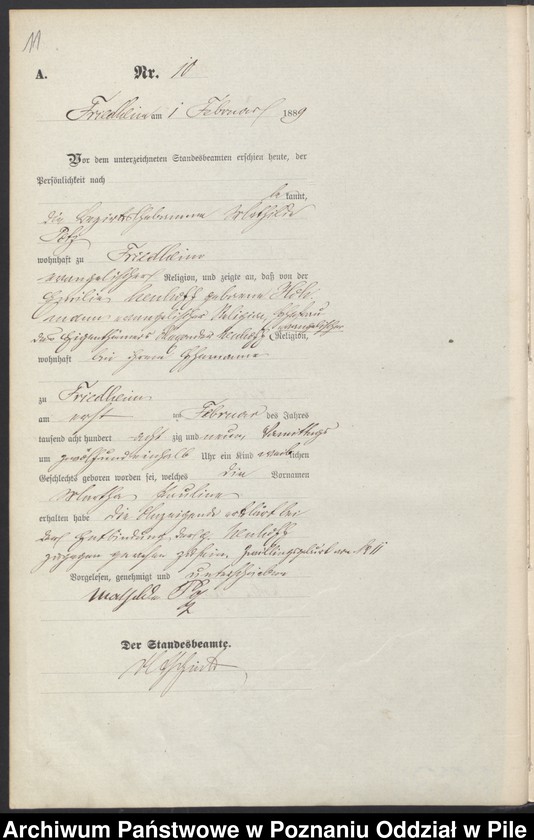 11
A. Nr. 10
Friedheim am 1 Februar 1889
Vor dem unterzeichneten Standesbeamten erschien heute, der
Persönlichkeit nach
be kannt,
die Bezirkshebamme Mathilde
wohnhaft zu Friedheim
evangelischer Religion, und zeigte an, daß von der
Emilie Neuhoff geborene
evangelischer Religion, Ehefrau
des Eigenthümers Neuhoff evangelischer Religion,
wohnhaft bei ihrem Ehemanne
zu Friedheim
am erst ten Februar des Jahres
tausend acht hundert acht zig und neun, Vormittags
um zwölfundeinhalb Uhr ein Kind weiblichen
Geschlechts geboren worden sei, welches die Vornamen
Martha Pauline
erhalten habe die Anzeigende erklärt bei
der Entbindung der Neuhoff
zugegen gewesen zu sein. Zwillingsgeburt von Nr 11
Vorgelesen, genehmigt und unterschrieben
Mathilde
Der Standesbeamte.
Archiwum Państwowe w Poznaniu Oddział w Pile